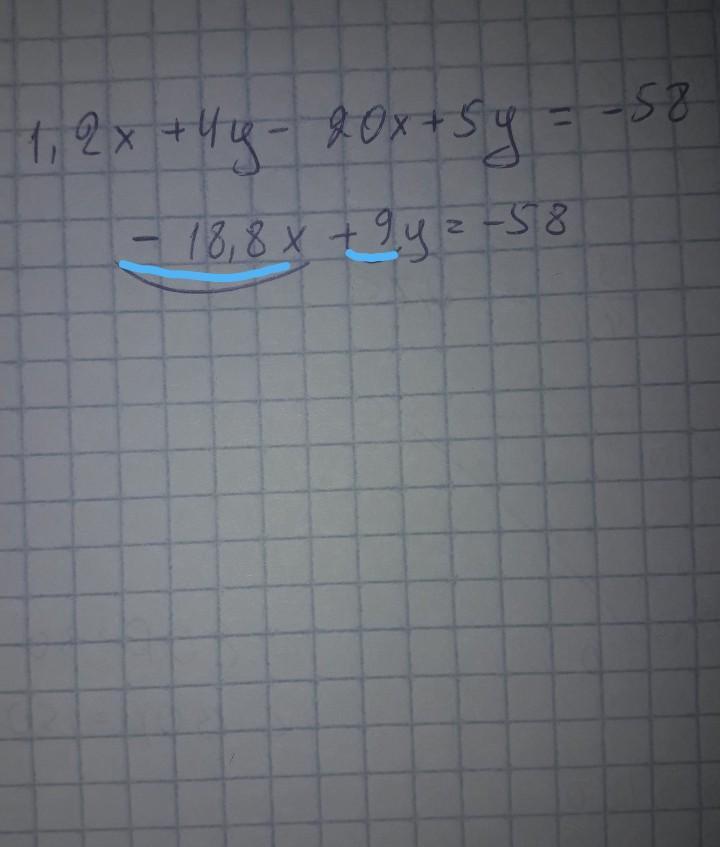 1,2x + 4y - 20x + 5y = -58
- 18,8x + 9y = -58